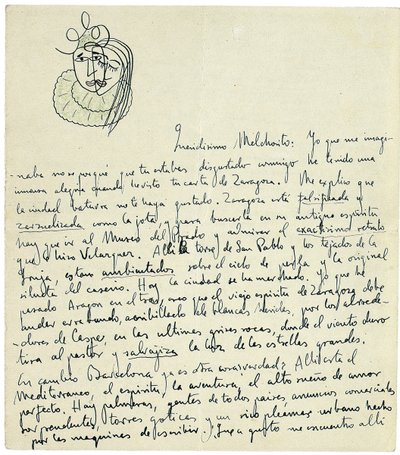 Queridisimo Melchorito: Yo que me imagi-
naba no se porqué que tu estabas disgustado conmigo he tenido una
inmensa alegria quando he visto tu carta de Zaragoza. Me explico que
la ciudad baturra no te haya gustado. Zaragoza está falsificada y
zarzuelizada como la jota y para buscarla en su antiguo espiritu
hay que ir al Museo del Prado y admirar el exactisimo retrato
que hizo Velazquez. Alli la torre de San Pablo y los tejados de la
lonja estan ambientados sobre el cielo de perla y la original
silueta del caserio. Hoy la ciudad se ha marchado. Yo que he
pasado Aragon en el tren, creo que el viejo espiritu de Zaragoza debe
andar errabundo, acribillado de blancas heridas, por los alrede-
dores de Caspe, en las ultimas grises rocas, donde el viento duro
tira al pastor y salvajiza la luz de las estrellas grandes.
En cambio Barcelona ya es otra cosa ¿verdad? Alli está el
Mediterraneo, el espiritu, la aventura, el alto sueño de amor
perfecto. Hay palmeras, gentes de todos paises, anuncios comerciales
sorprendentes, torres goticas y un rico pleamar urbano hecho
por las maquinas de escribir. ¡Que a gusto me encuentro alli